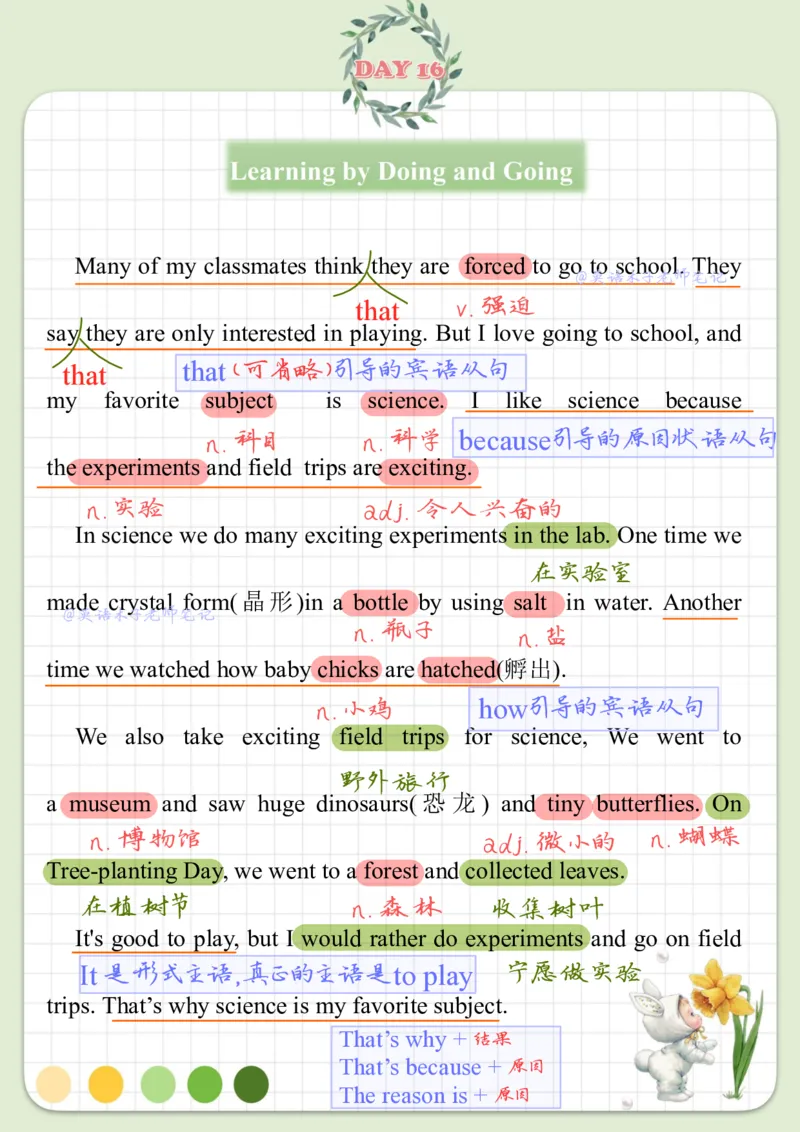 DAY 16
Learning by Doing and Going
Many of my classmates think they are forced to go to school. They
@英语木子老师笔记
that
v. 强迫
say they are only interested in playing. But I love going to school, and
that
that(可省略)引导的宾语从句
my favorite subject is science. I like science because
n. 科目
n. 科学
because引导的原因状语从句
the experiments and field trips are exciting.
n. 实验
adj. 令人兴奋的
In science we do many exciting experiments in the lab. One time we
在实验室
made crystal form(晶形)in a bottle by using salt in water. Another
@英语木子老师笔记
n. 瓶子
n. 盐
time we watched how baby chicks are hatched(孵出).
n. 小鸡
how引导的宾语从句
We also take exciting field trips for science, We went to
野外旅行
a museum and saw huge dinosaurs(恐龙) and tiny butterflies. On
n. 博物馆
adj. 微小的
n. 蝴蝶
Tree-planting Day, we went to a forest and collected leaves.
在植树节
n. 森林
收集树叶
It's good to play, but I would rather do experiments and go on field
It 是形式主语,真正的主语是to play
宁愿做实验
trips. That’s why science is my favorite subject.
That’s why + 结果
That’s because + 原因
The reason is + 原因